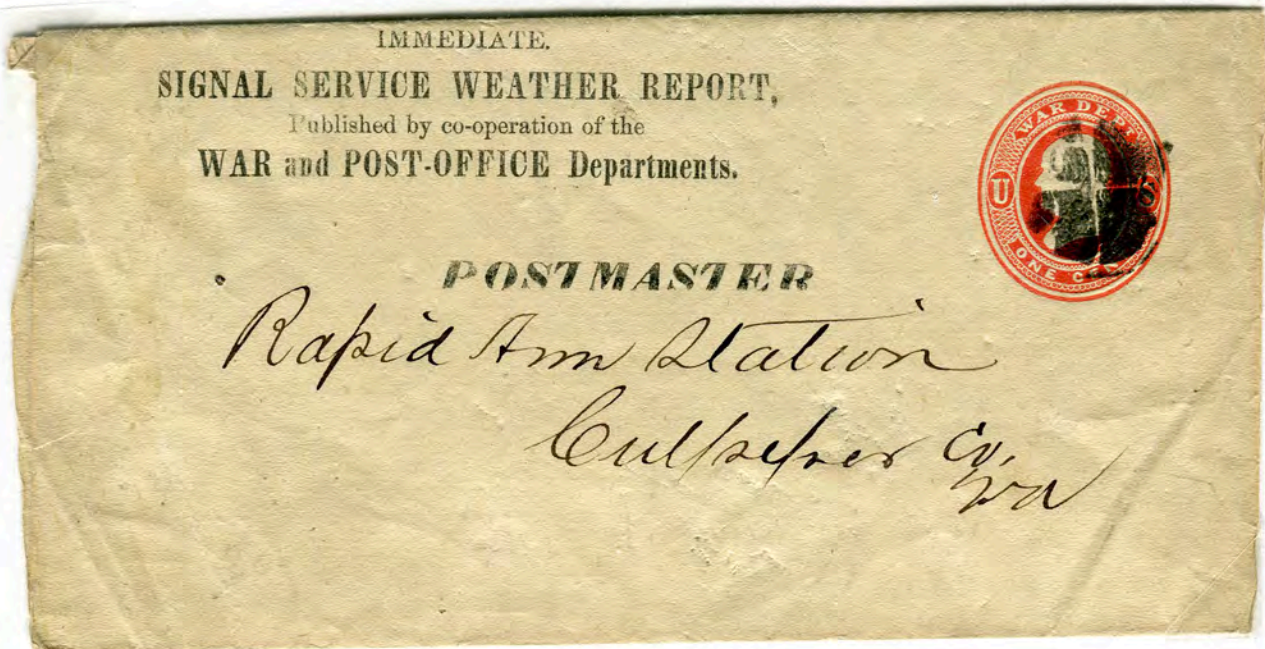 IMMEDIATE.
SIGNAL SERVICE WEATHER REPORT,
Published by co-operation of the
WAR and POST-OFFICE Departments.
WAR DEPT
U S
ONE CEN
POSTMASTER
Rapid Ann Station
Culpeper Co,
Va